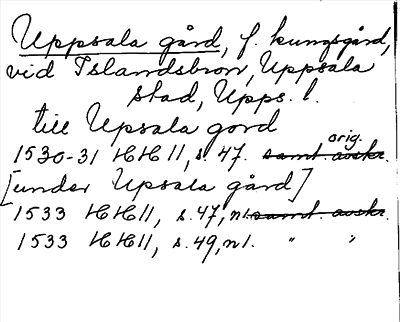 Uppsala gård, f. kungsgård,
vid Islandsbron, Uppsala
stad, Upps. l.
till Upsala gord
orig.
1530-31 HH 11, s. 47. samt avskr.
[under Upsala gård]
1533 HH 11, s. 47, n1. samt avskr.
1533 HH 11, s. 49, n1. " "